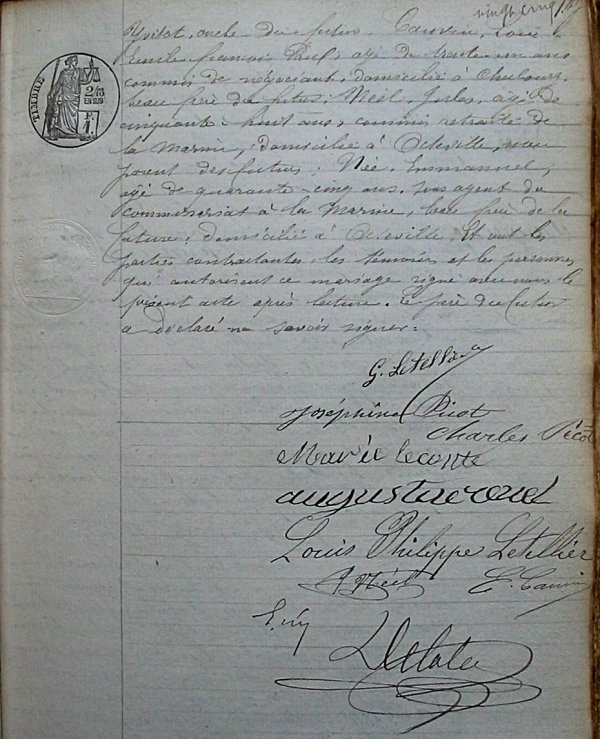 vingt cinq
TIMBRE
oncle du futur; Cauvin, Louis
Emile François Paul, âgé de trente un ans
commis de négociant, domicilié à Cherbourg,
beau frère du futur; Néel, Jules, âgé de
cinquante-huit ans, commis retraité de
la Marine, domicilié à Octeville, non
parent des futurs; Née, Emmanuel,
âgé de quarante-cinq ans, sous agent du
commissariat à la Marine, beau frère de la
future; domicilié à Octeville, Et ont les
parties contractantes, les témoins et les personnes
qui autorisent ce mariage signé avec nous le
présent acte après lecture. Le père du futur
a déclaré ne savoir signer.
G. Letellier
Joséphine Picot
Charles Picot
Marie Leconte
Louis Philippe Letellier
J Néel E. Cauvin
E. Née